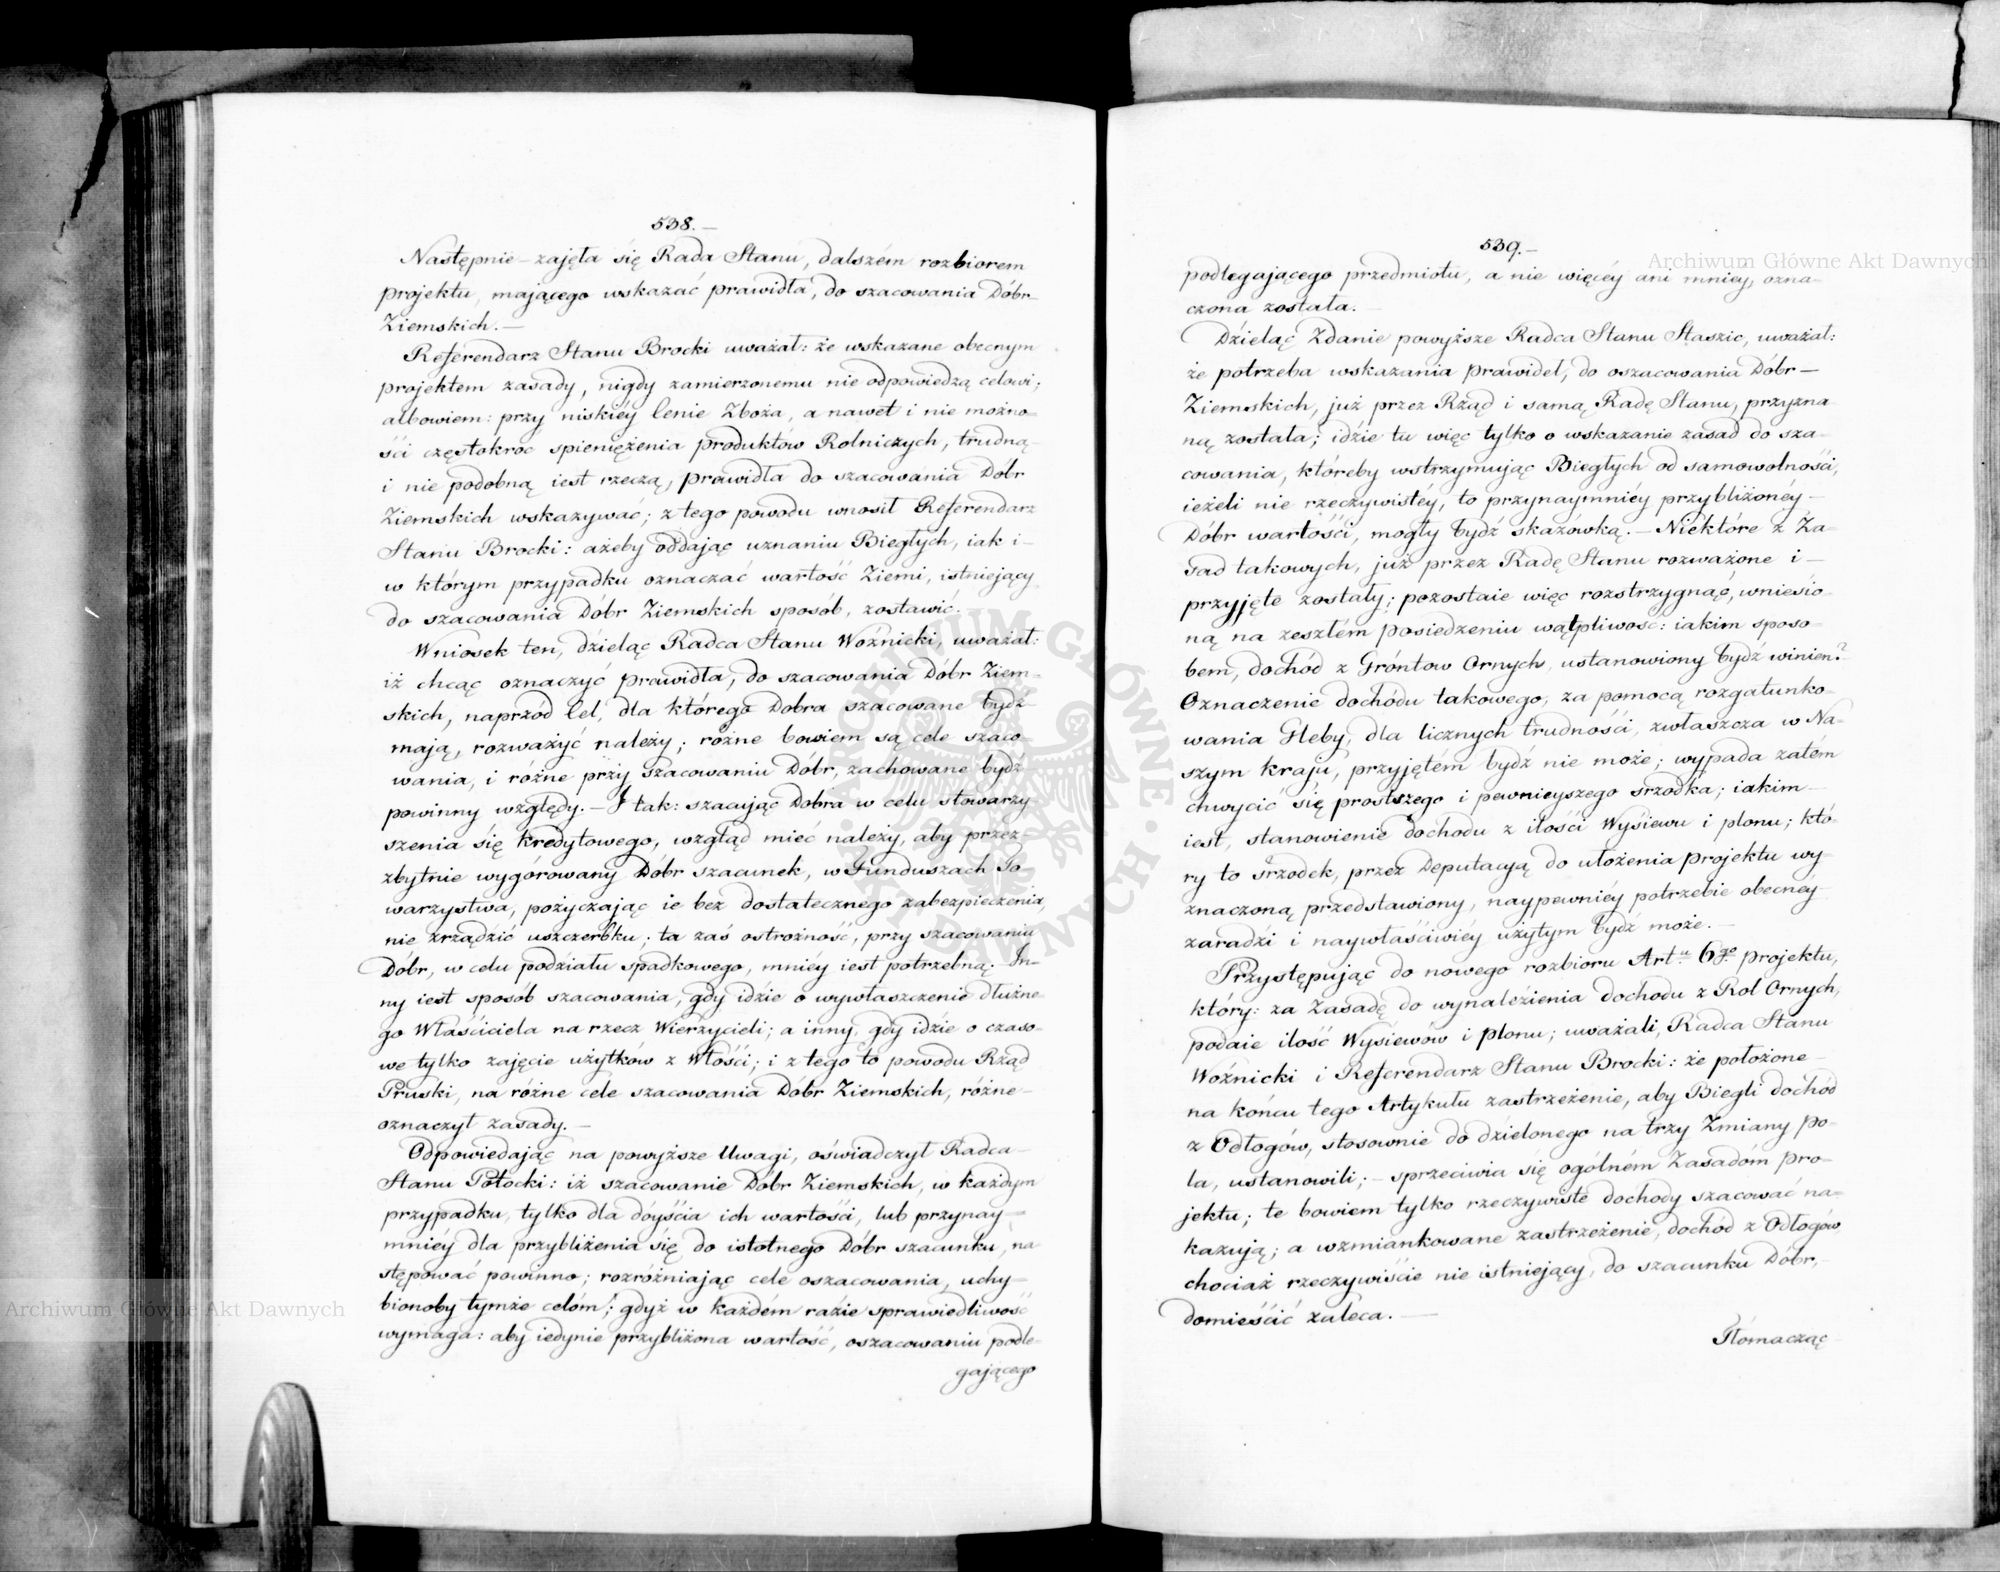 538.—
Następnie – zajęła się Rada Stanu, dalszém rozbiorem
projektu, mającego wskazać prawidła, do szacowania Dóbr
Ziemskich. —
Referendarz Stanu Brocki uważał: że wskazane obecnym
projektem zasady, nigdy zamierzonemu nie odpowiedzą celowi;
albowiem: przy niskiéy Cenie Zboża, a nawet i nie możno-
ści częstokroć spieniężenia produktów Rolniczych, trudną
i nie podobną iest rzeczą, prawidła do szacowania Dóbr
Ziemskich wskazywać; z tego powodu wnosił Referendarz
Stanu Brocki: ażeby oddając uznaniu Biegłych, iak i –
w którym przypadku oznaczać wartość Ziemi, istniejący
do szacowania Dóbr Ziemskich sposób, zostawić.
Wniosek ten, dzieląc Radca Stanu Woźnicki, uważał:
iż chcąc oznaczyć prawidła, do szacowania Dóbr Ziem-
skich, naprzód Cel, dla którego Dobra szacowane bydź
mają, rozważyć należy; różne bowiem są cele szaco-
wania, i różne przy szacowaniu Dóbr, zachowane bydź
powinny względy. – I tak: szacując Dobra w celu stowarzy-
szenia się kredytowego, wzgląd mieć należy, aby przez –
zbytnie wygórowany Dóbr szacunek, w Funduszach To-
warzystwa, pożyczając ie bez dostatecznego zabezpieczenia,
nie zrządzić uszczerbku; ta zaś ostrożność, przy szacowaniu
Dóbr, w celu podziału spadkowego, mniéy iest potrzebną. In-
ny iest sposób szacowania, gdy idzie o wywłaszczenie dłużne-
go Właściciela na rzecz Wierzycieli; a inny, gdy idzie o czaso-
we tylko zajęcie użytków z Włości; i z tego to powodu Rząd
Pruski, na różne cele szacowania Dóbr Ziemskich, różne –
oznaczył zasady. —
Odpowiedając na powyższe Uwagi, oświadczył Radca –
Stanu Potocki: iż szacowanie Dóbr Ziemskich, w każdym
przypadku, tylko dla doyścia ich wartości, lub przynay-
mniéy dla przybliżenia się do istotnego Dóbr szacunku, na-
stępować powinno; rozróżniając cele oszacowania, uchy-
bionoby tymże celóm; gdyż w każdém razie sprawiedliwość
wymaga: aby iedynie przybliżona wartość, oszacowaniu podle-
gającego
539.—
podlegającego przedmiotu, a nie więcéy ani mniey, ozna-
czona została. —
Dzieląc Zdanie powyższe Radca Stanu Staszic, uważał:
że potrzeba wskazania prawideł, do oszacowania Dóbr –
Ziemskich, już przez Rząd i samą Radę Stanu, przyzna
ną została; idzie tu więc tylko o wskazanie zasad do sza-
cowania, któreby wstrzymując Biegłych od samowolności,
ieżeli nie rzeczywistéy, to przynaymniéy przybliżonéy –
Dóbr wartości, mogły bydź skazówką. – Niektóre z Za-
sad takowych, już przez Radę Stanu rozważone i –
przyjęte zostały; pozostaie więc rozstrzygnąć, wniesio-
ną na zeszłém posiedzeniu wątpliwość: iakim sposo-
bem, dochód z Gróntow Ornych, ustanowiony bydź winien?
Oznaczenie dochódu takowego, za pomocą rozgatunko-
wania Gleby, dla licznych trudności, zwłaszcza w Na-
szym kraju, przyjętém bydź nie może; wypada zatém
chwycić się prostszego i pewnieyszego srzodka; iakim –
iest, stanowienie dochodu z ilości Wysiewu i plonu; któ-
ry to srzodek, przez Deputacyą do ułożenia projektu wy-
znaczoną przedstawiony, naypewniéy potrzebie obecnéy
zaradzi i naywłaściwiéy użytym bydź może. —
Przystępując do nowego rozbioru Art.u 6go projektu,
który: za Zasadę do wynaleźienia dochodu z Rol Ornych,
podaie ilość Wysiewów i plonu; uważali, Radca Stanu
Woźnicki i Referendarz Stanu Brocki: że położone –
na końcu tego Artykułu zastrzeżenie, aby Biegli dochód
z Odłogów, stosownie do dzielonego na trzy Zmiany po-
la, ustanowili; – sprzeciwia się ogólném Zasadóm pro-
jektu; te bowiem tylko rzeczywiste dochody szacować na-
kazują; a wzmiankowane zastrzeżenie, dochód z Odłogów,
chociaż rzeczywiście nie istniejący, do szacunku Dóbr, –
domieścić zaleca. —
Tłómacząc
Archiwum Główne Akt Dawnych
Archiwum Główne Akt Dawnych
ARCHIWUM GŁÓWNE AKT DAWNYCH